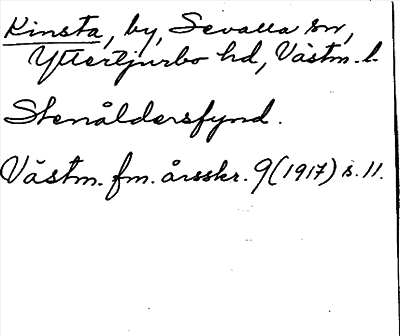 Kinsta, by, Sevalla sn,
Yttertjurbo hd, Västm. l.
Stenåldersfynd.
Västm. fm. årsskr. 9 (1917) s. 11.